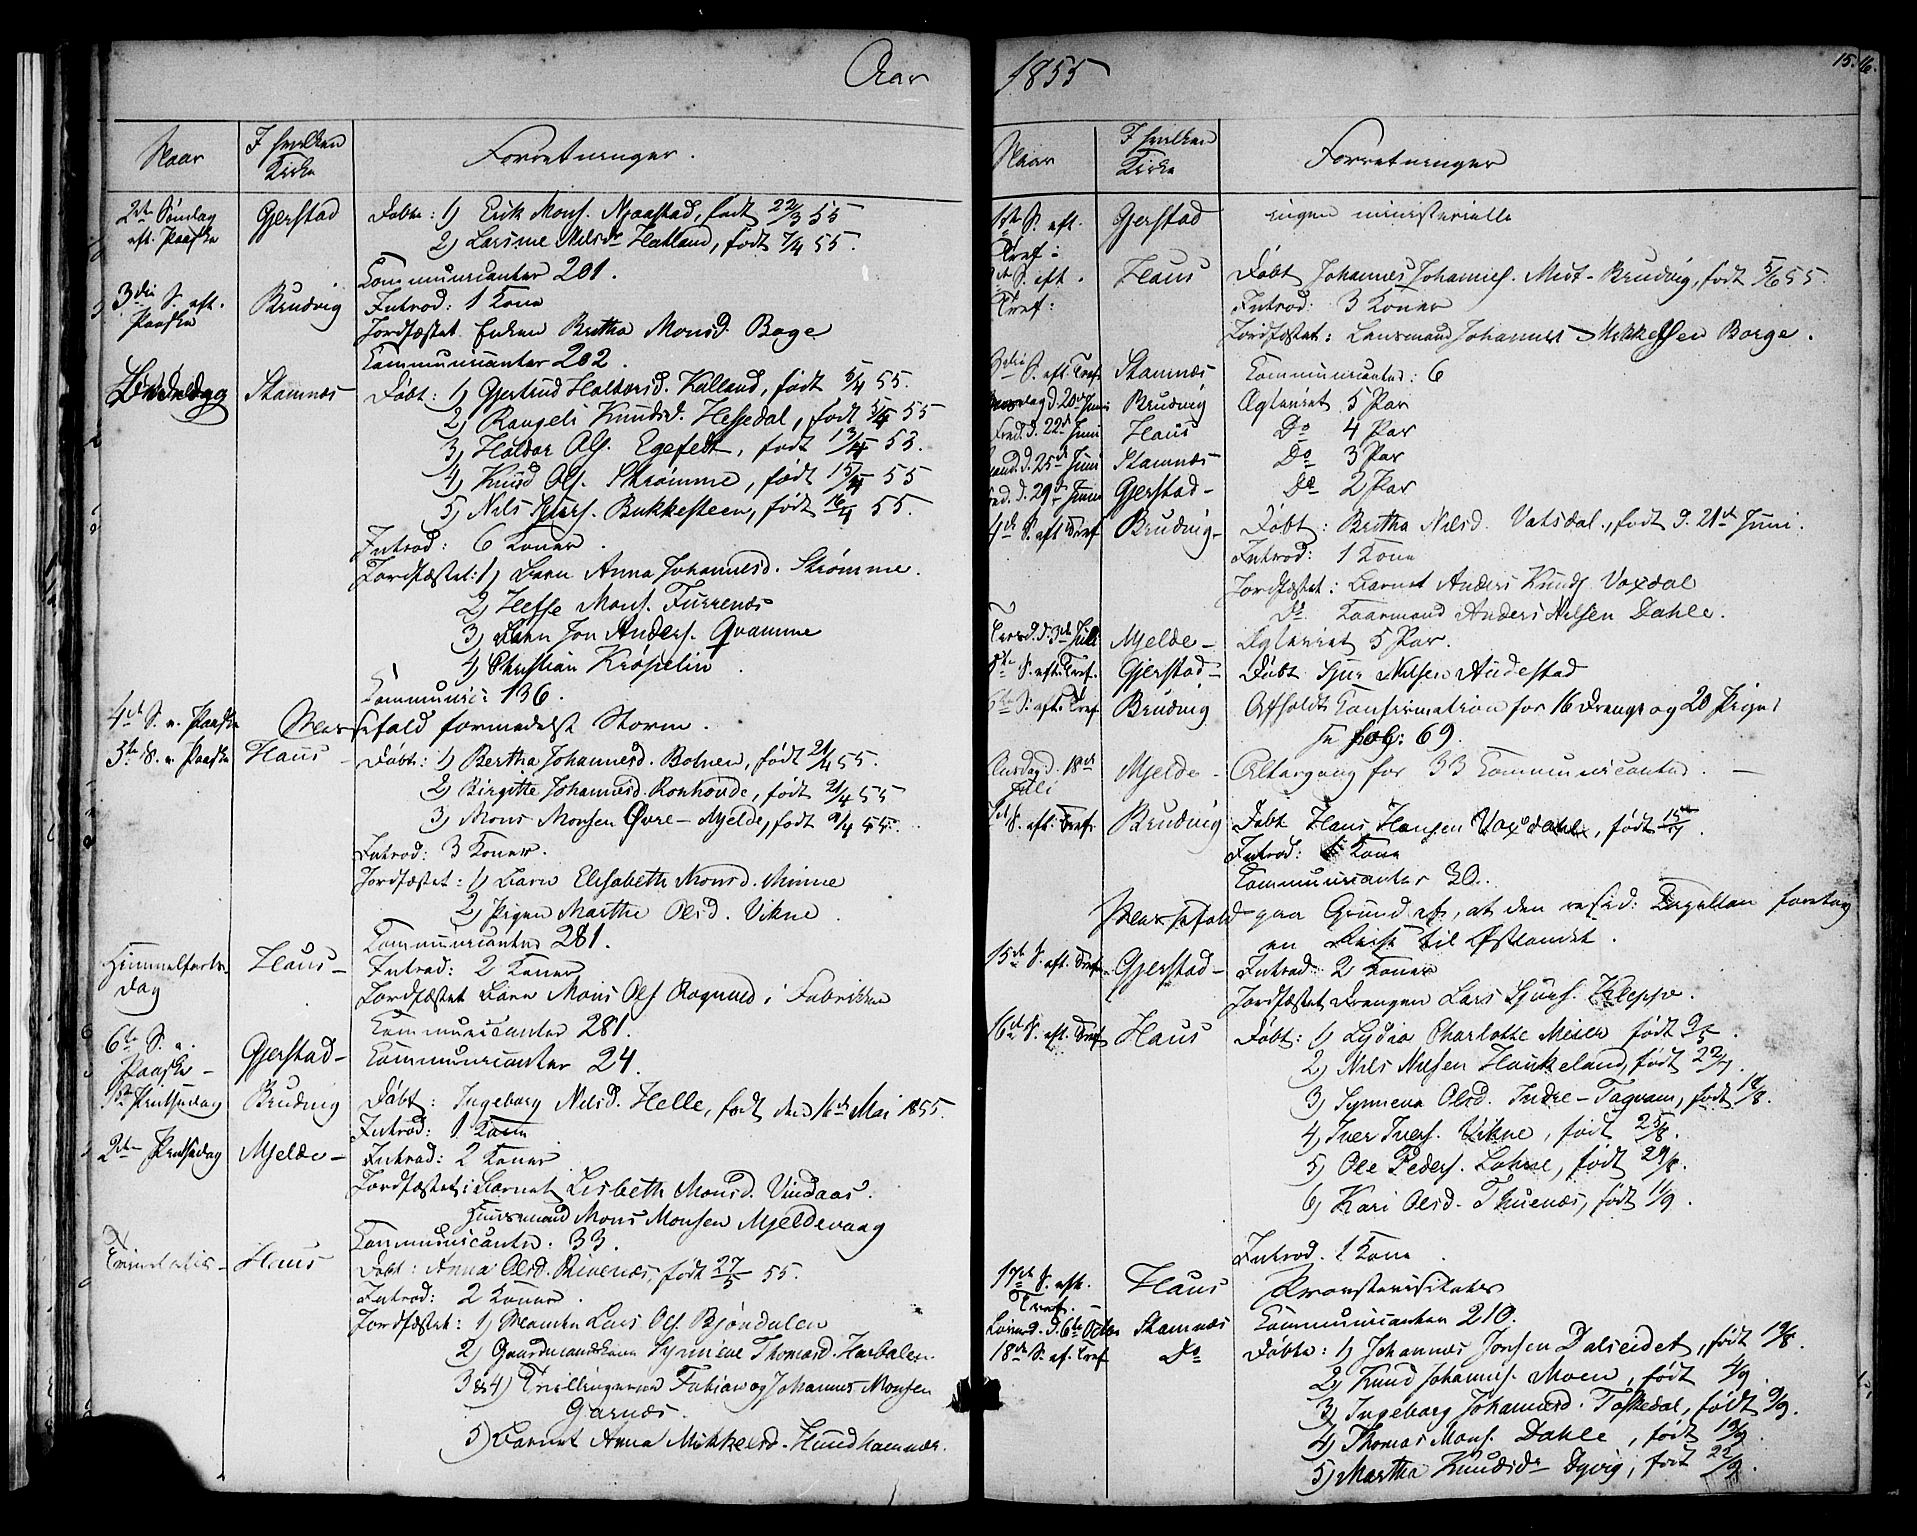 Aar
Naar I hvilken Kirke Forretninger.
2de Søndag Gjerstad Døbte: 1) Erik Mons. Njaastad, født 22/3 55
eft. Paaske 2) Larsine Nilsdr Hatland, født 7/4 55.
Communicanter 201.
3die S. eft. Brudvig Introd: 1 Kone
Paaske Jordfæstet Enken Britha Monsd. Boge
Communicanter 202.
Stamnæs Døbt: 1) Gjertrud Haldorsd. Kalland, født 5/4 55.
2) Rangeli Knudsd. Hessedal, født 5/4 55
3) Haldor Ols. Egefedt, født 13/4 53.
4) Knud Ols. Strømme, født 15/4 55
5) Nils Sjurs. Bukkesteen, født 16/4 55.
Introd: 6 Koner.
Jordfæstet: 1) Barn Anna Johannesd. Strømme.
2) Mons. Furrenæs
3) Barn Jon Anders. Qvamme
4) Christian Krøpelin.
Communic: 136.
4de S. e. Paaske Messefald formedelst Storm.
S. e. Paaske Haus Døbt: 1) Bertha Johannesd. Botnen, født 21/4 55.
2) Birgitte Johannesd. Ronhovde, født 21/4 55
3) Mons Monsen Øvre-Mjelde, født 9/4 55.
Introd: 3 Koner.
Jordfæstet: 1) Barn Elisabeth Monsd. Minne
2) Pigen Marthe Olsd. Vikne.
Communicanter 281.
Himmelfarts- Haus Introd: 2 Koner
dag Jordfæstet Barn Mons Ols. i Fabrikken
Communicanter 281.
6te S. e. Gjerstad Communicanter 24.
Paaske
1ste Pintsedag Brudvig Døbt: Ingeborg Nilsd. Helle, født den 16de Mai 1855.
Introd: 1 Kone
2den Pintsedag Mjelde Introd: 2 Koner
Jordfæstet: Barnet Lisbeth Monsd. Vindaas.
Huusmand Mons Monsen Mjeldevaag
Communicanter: 33.
Trinitatis Haus Døbt: Anna Olsd. Rivenæs, født 27/5 55.
Introd: 2 Koner.
Jordfæstet: 1) Lars Ols. Bjøndalen
2) Gaardmandskone Synneve Thomasd.
3 & 4) Trillingerne Fabian og Johannes Monsen
Garnæs.
5) Barnet Anna Mikkelsd. Hundhamnær.
1855
15. 16.
Naar I hvilken Kirke Forretninger
S. eft. Gjerstad ingen ministerielle
Tref:
S. eft. Haus Døbt Johannes Johannes. Brudvig, født 5/6 55.
Tref: Introd: 3 Koner
Jordfæstet: Lensmand Johannes Mikkelsen Borge.
S. eft. Tref. Stamnæs Communicanter: 6
d. 20de Juni Brudvig Ægteviet 5 Par
Fred. d. 22de Juni Haus Do 4 Par
Mand. d. 25de Juni Stamnæs Do 3 Par
Fred. d. 29de Juni Gjerstad Do 2 Par
4de S. eft. Tref Brudvig Døbt: Britha Nilsd. Vatsdal, født d. 21de Juni.
Introd: 1 Kone
Jordfæstet: Barnet Anders Knuds. Voxdal
Do Kaarmand Anders Nilsen Dahle.
Tirsd. d. 3de Juli Mjelde Ægteviet 5 Par.
5te S. eft. Tref. Gjerstad Døbt Sjur Nilsen Audestad
6te S. eft. Tref Brudvig Afholdt Confirmation for 16 Drenge og 20 Piger
se fol: 69.
Onsdag d. 18de Mjelde Altergang for 33 Communicanter.
Juli
S. eft. Tref. Brudvig Døbt Hans Hansen Voxdahl, født 15/7.
Introd: Kone
Communicanter 30.
Messefald paa Grund af, at den resid: Capellan foretog
en Reise til Østlandet.
15de S. eft. Tref. Gjerstad Introd: 2 Koner
Jordfæstet Drengen Lars Sjurs. Kleppe.
16de S. eft. Tref Haus Døbt: 1) Lydia Charlotte Meier født 9/5.
2) Nils Nilsen Haukeland, født 22/7.
3) Synneva Olsd. Indre-Tagvam, født /8.
4) Iver Ivers. Vikne, født 25/8.
5) Ole Peders. Lohne, født 29/8.
6) Kari Olsd. Thuenæs, født 1/9.
Introd. 1 Kone.
17de S. eft. Haus Provstevisitats
Tref.
Løverd. d. 6te Octbr Stamnæs Communicanter 210.
18de S. ef. Tref Do Døbte: 1) Johannes Jonsen Dalseidet, født 19/8.
2) Knud Johannes. Moen, født 4/9.
3) Ingeborg Johannesd. Toskedal, født 9/9.
4) Thomas Mons. Dahle, født 19/9.
5) Martha Knudsdr Dyvig, født 22/9.